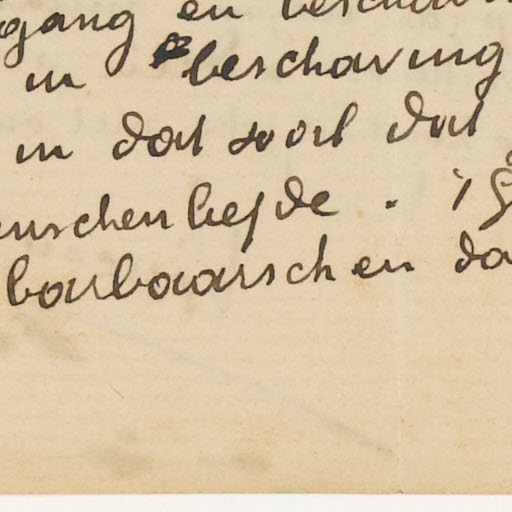 gang en beschav
in beschaving
in dat wat dat
enschenliefde. 'k
barbaarschen da